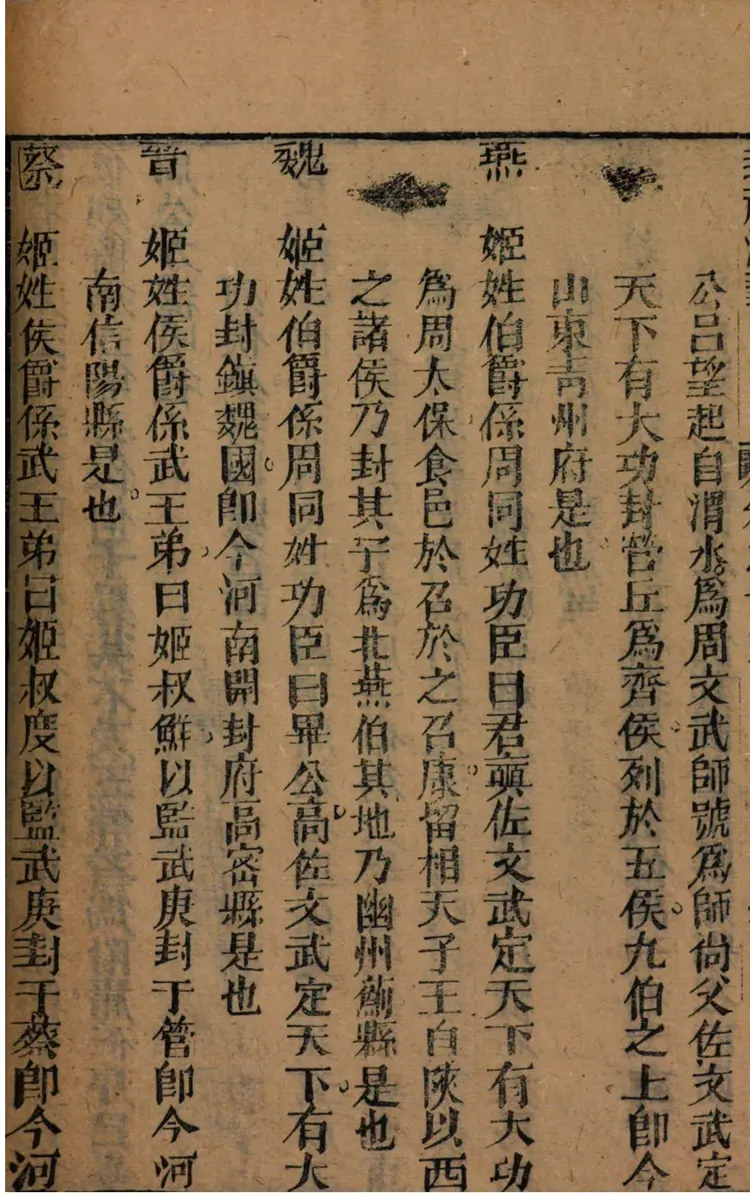 公呂望起自渭水爲周文武師號爲師尚父佐文武定
天下有大功封營丘爲齊侯。列於五侯。九伯之上即今
山東青州府是也。
燕 姬姓伯爵係周同姓功臣曰君奭佐文武定天下有大功
爲周太保食邑於召於之召康。留相天子王自陝以西
之諸侯乃封其子爲北燕伯其地乃幽州薊縣是也
魏 姬姓伯爵係周同姓功臣曰畢公高。佐文武定天下。有大
功封鎮魏國。即今河南開封府高密縣是也
晉 姬姓侯爵係武王弟曰姬叔鮮。以監武庚封于管即今河
南信陽縣是也。
蔡 姬姓侯爵係武王弟曰姬叔度以監武庚封于蔡即今河